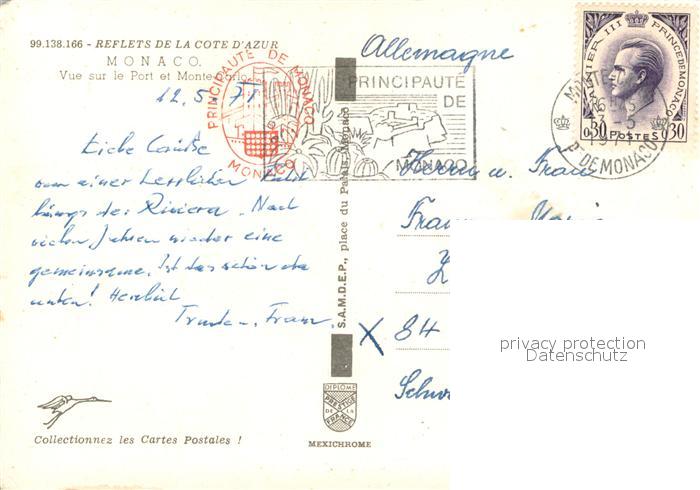 99.138.166 - REFLETS DE LA COTE D'AZUR
MONACO.
Vue sur le Port et Monte-Carlo
12.5.71
Liebe Grüße
von einer herrlichen Fahrt
längs der Riviera. Nach
vielen Jahren wieder eine
gemeinsame. Ist das schön da
unten! Herzlich
Franz.
Collectionnez les Cartes Postales !
S.A.M.D.E.P., place du Palais, Monaco
DIPLOME
PRESTIGE
DE LA
FRANCE
MEXICHROME
PRINCIPAUTÉ DE MONACO
MONACO
PRINCIPAUTÉ
DE
MONACO
RAINIER III PRINCE DE MONACO
0.30 POSTES 0.30
P. DE MONACO
Allemagne
Herrn u. Frau
X 84
privacy protection
Datenschutz